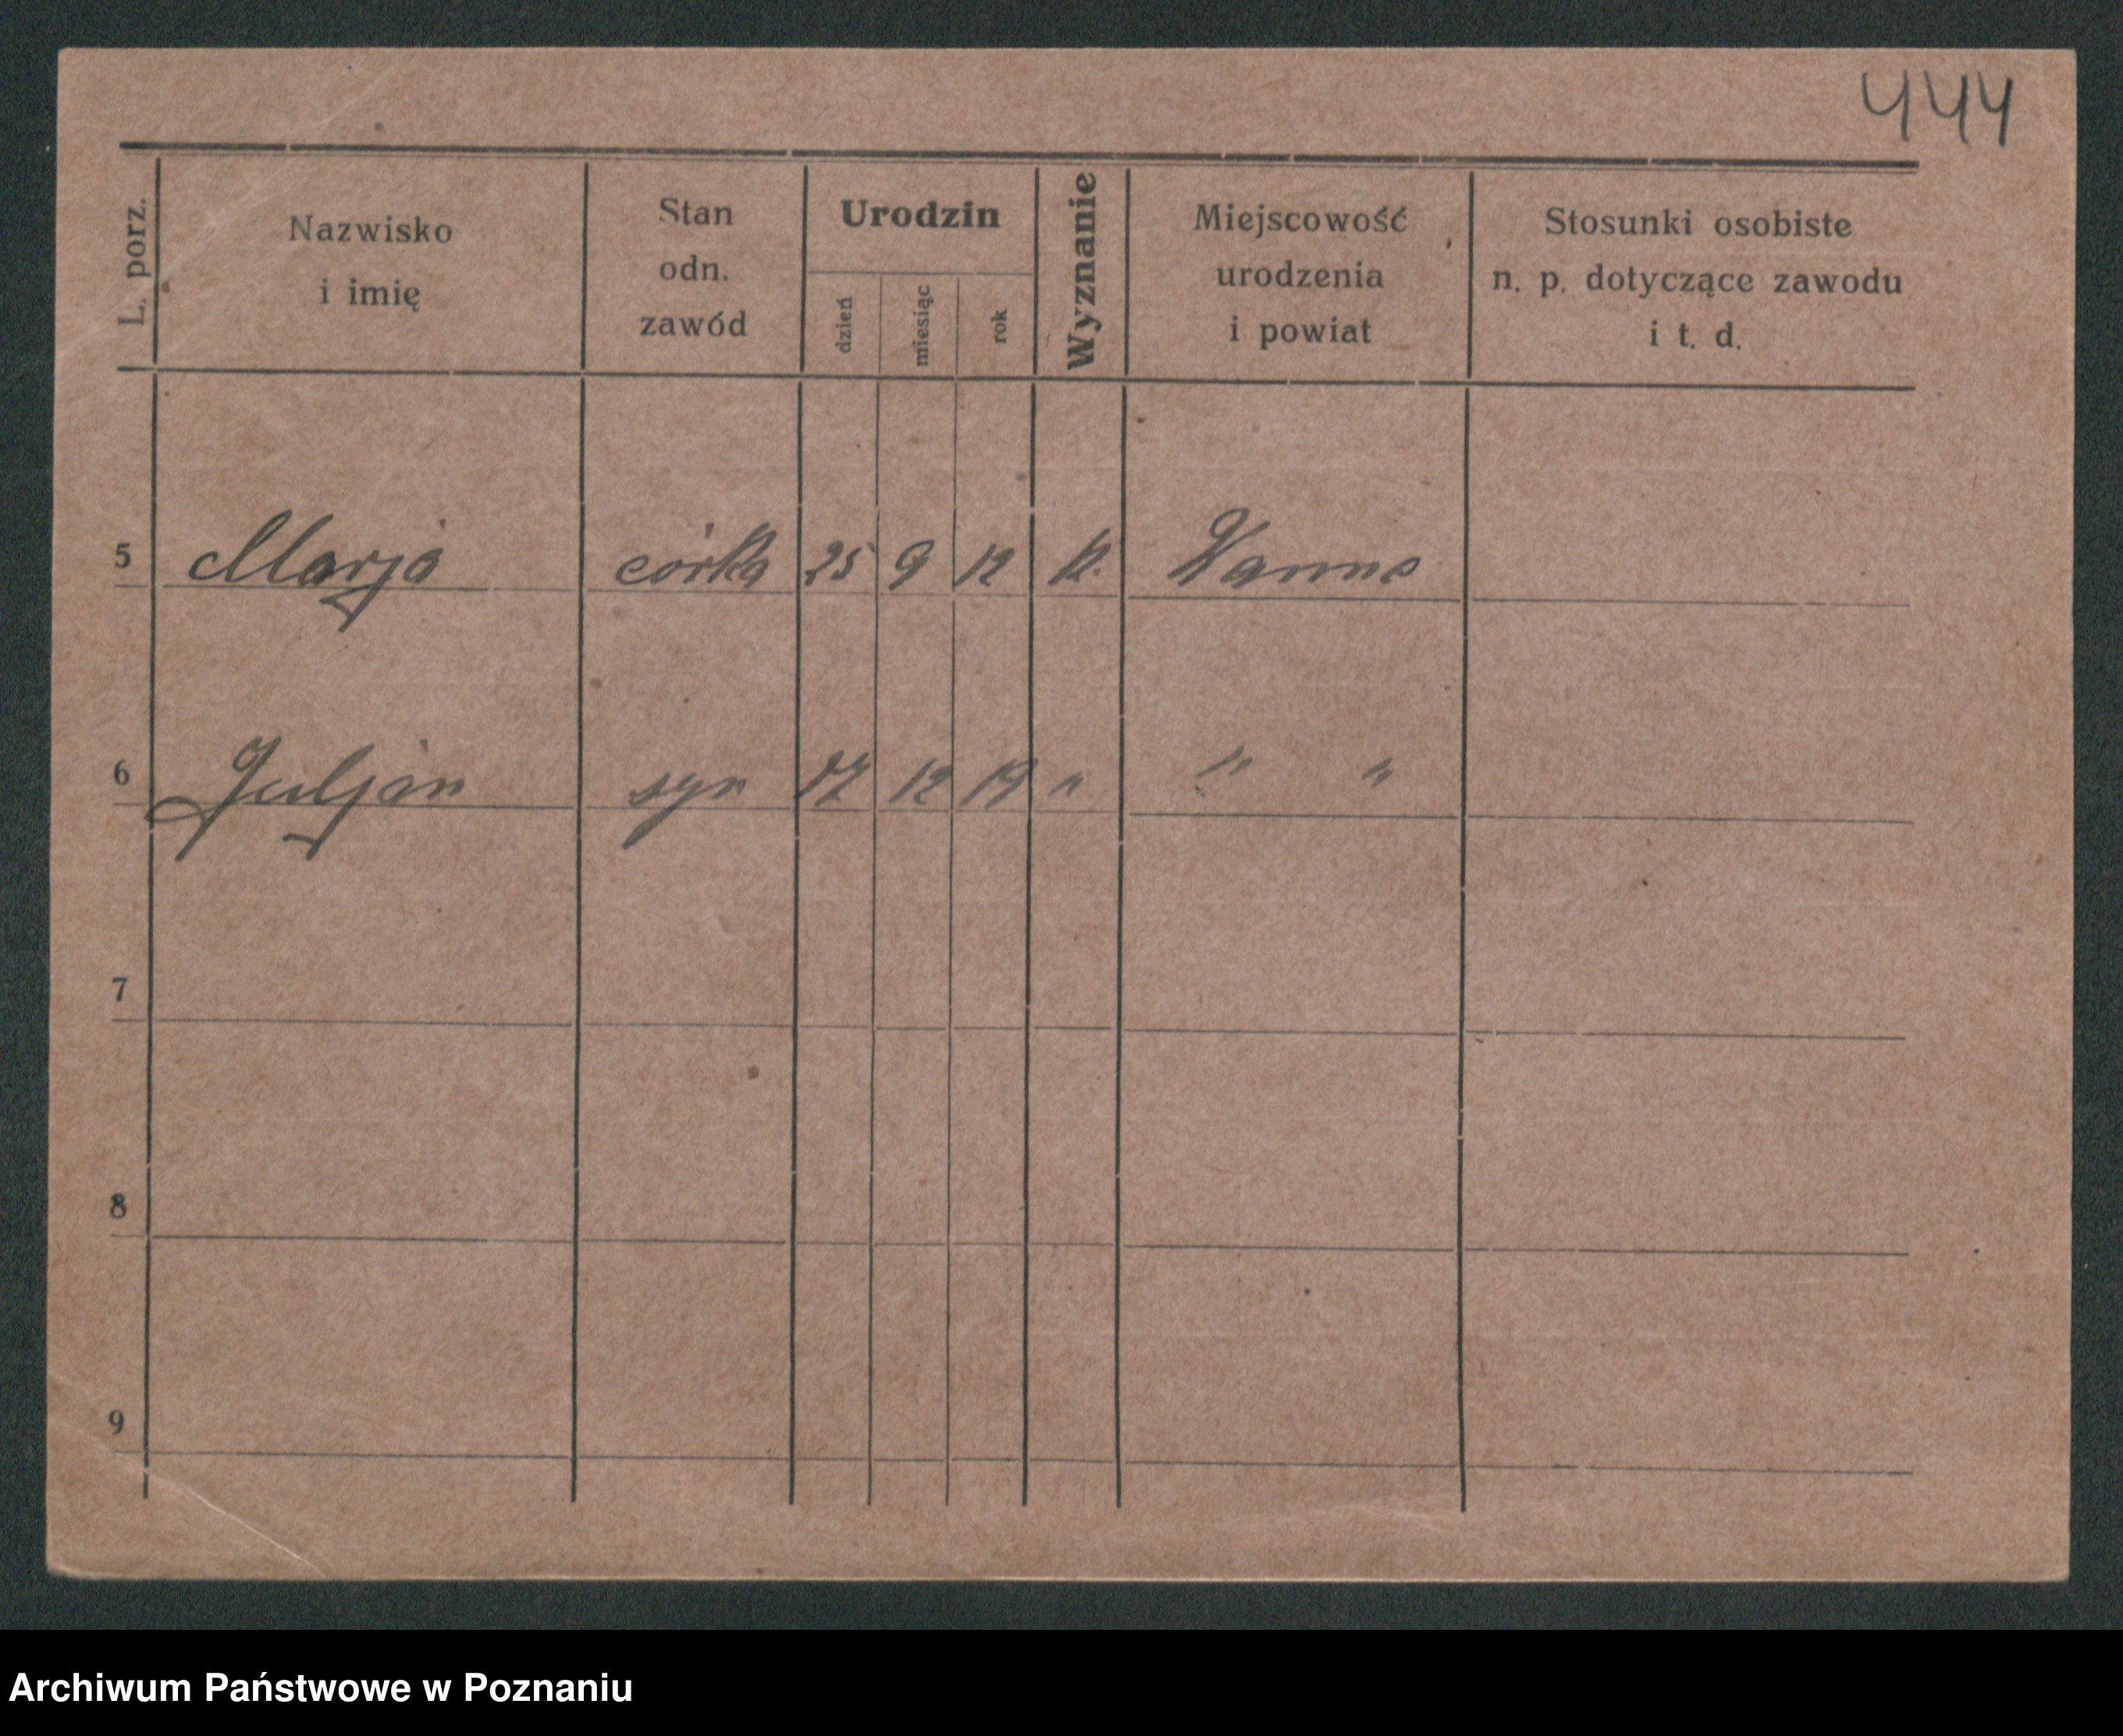 444
L. porz.
Nazwisko
i imię
Stan
odn.
zawód
Urodzin
dzień
miesiąc
rok
Wyznanie
Miejscowość
urodzenia
i powiat
Stosunki osobiste
n. p. dotyczące zawodu
i t. d.
5 Marja córka 25 9 12 k. Wanne
6 Juljan syn 17 12 19 " " "
7
8
9
Archiwum Państwowe w Poznaniu